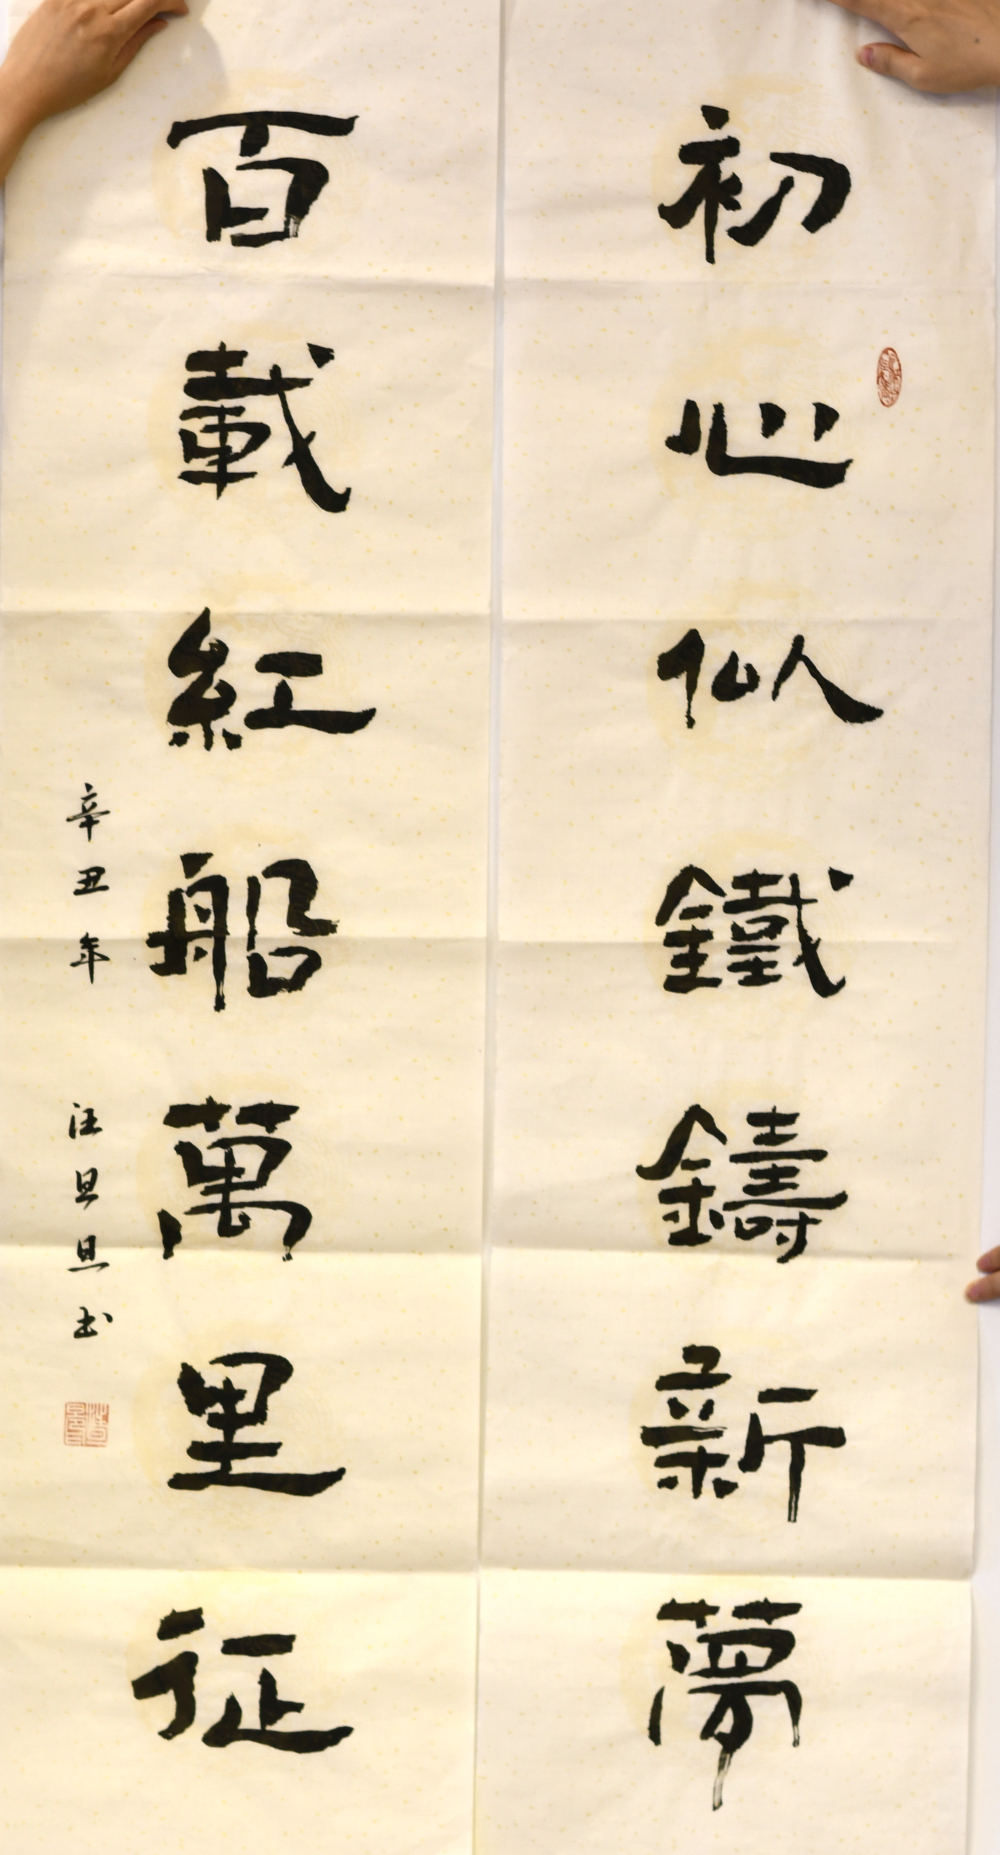 初心似鐵鑄新夢
百載紅船萬里征
辛丑年 汪旦旦书